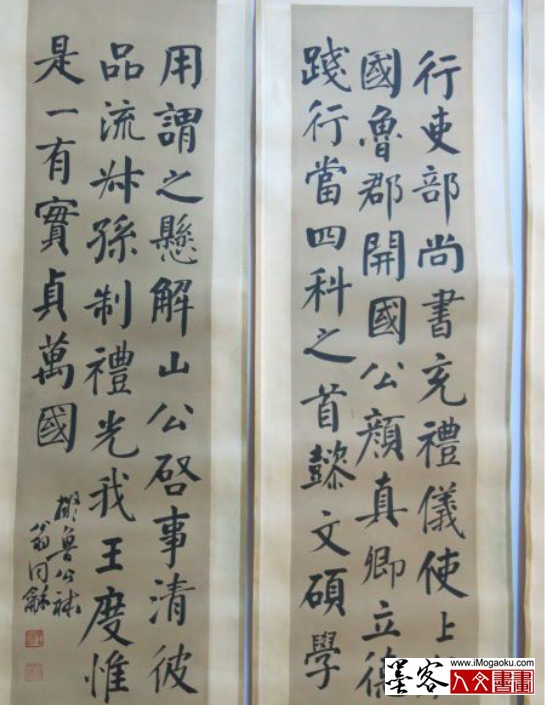 行吏部尚書充禮儀使上
國魯郡開國公顏真卿立德
踐行當四科之首懿文碩學
用謂之懸解山公啓事清彼
品流叔孫制禮光我王度惟
是一有實貞萬國
魯公
翁同龢
墨客
www.iMogaoku.com
人文書畫